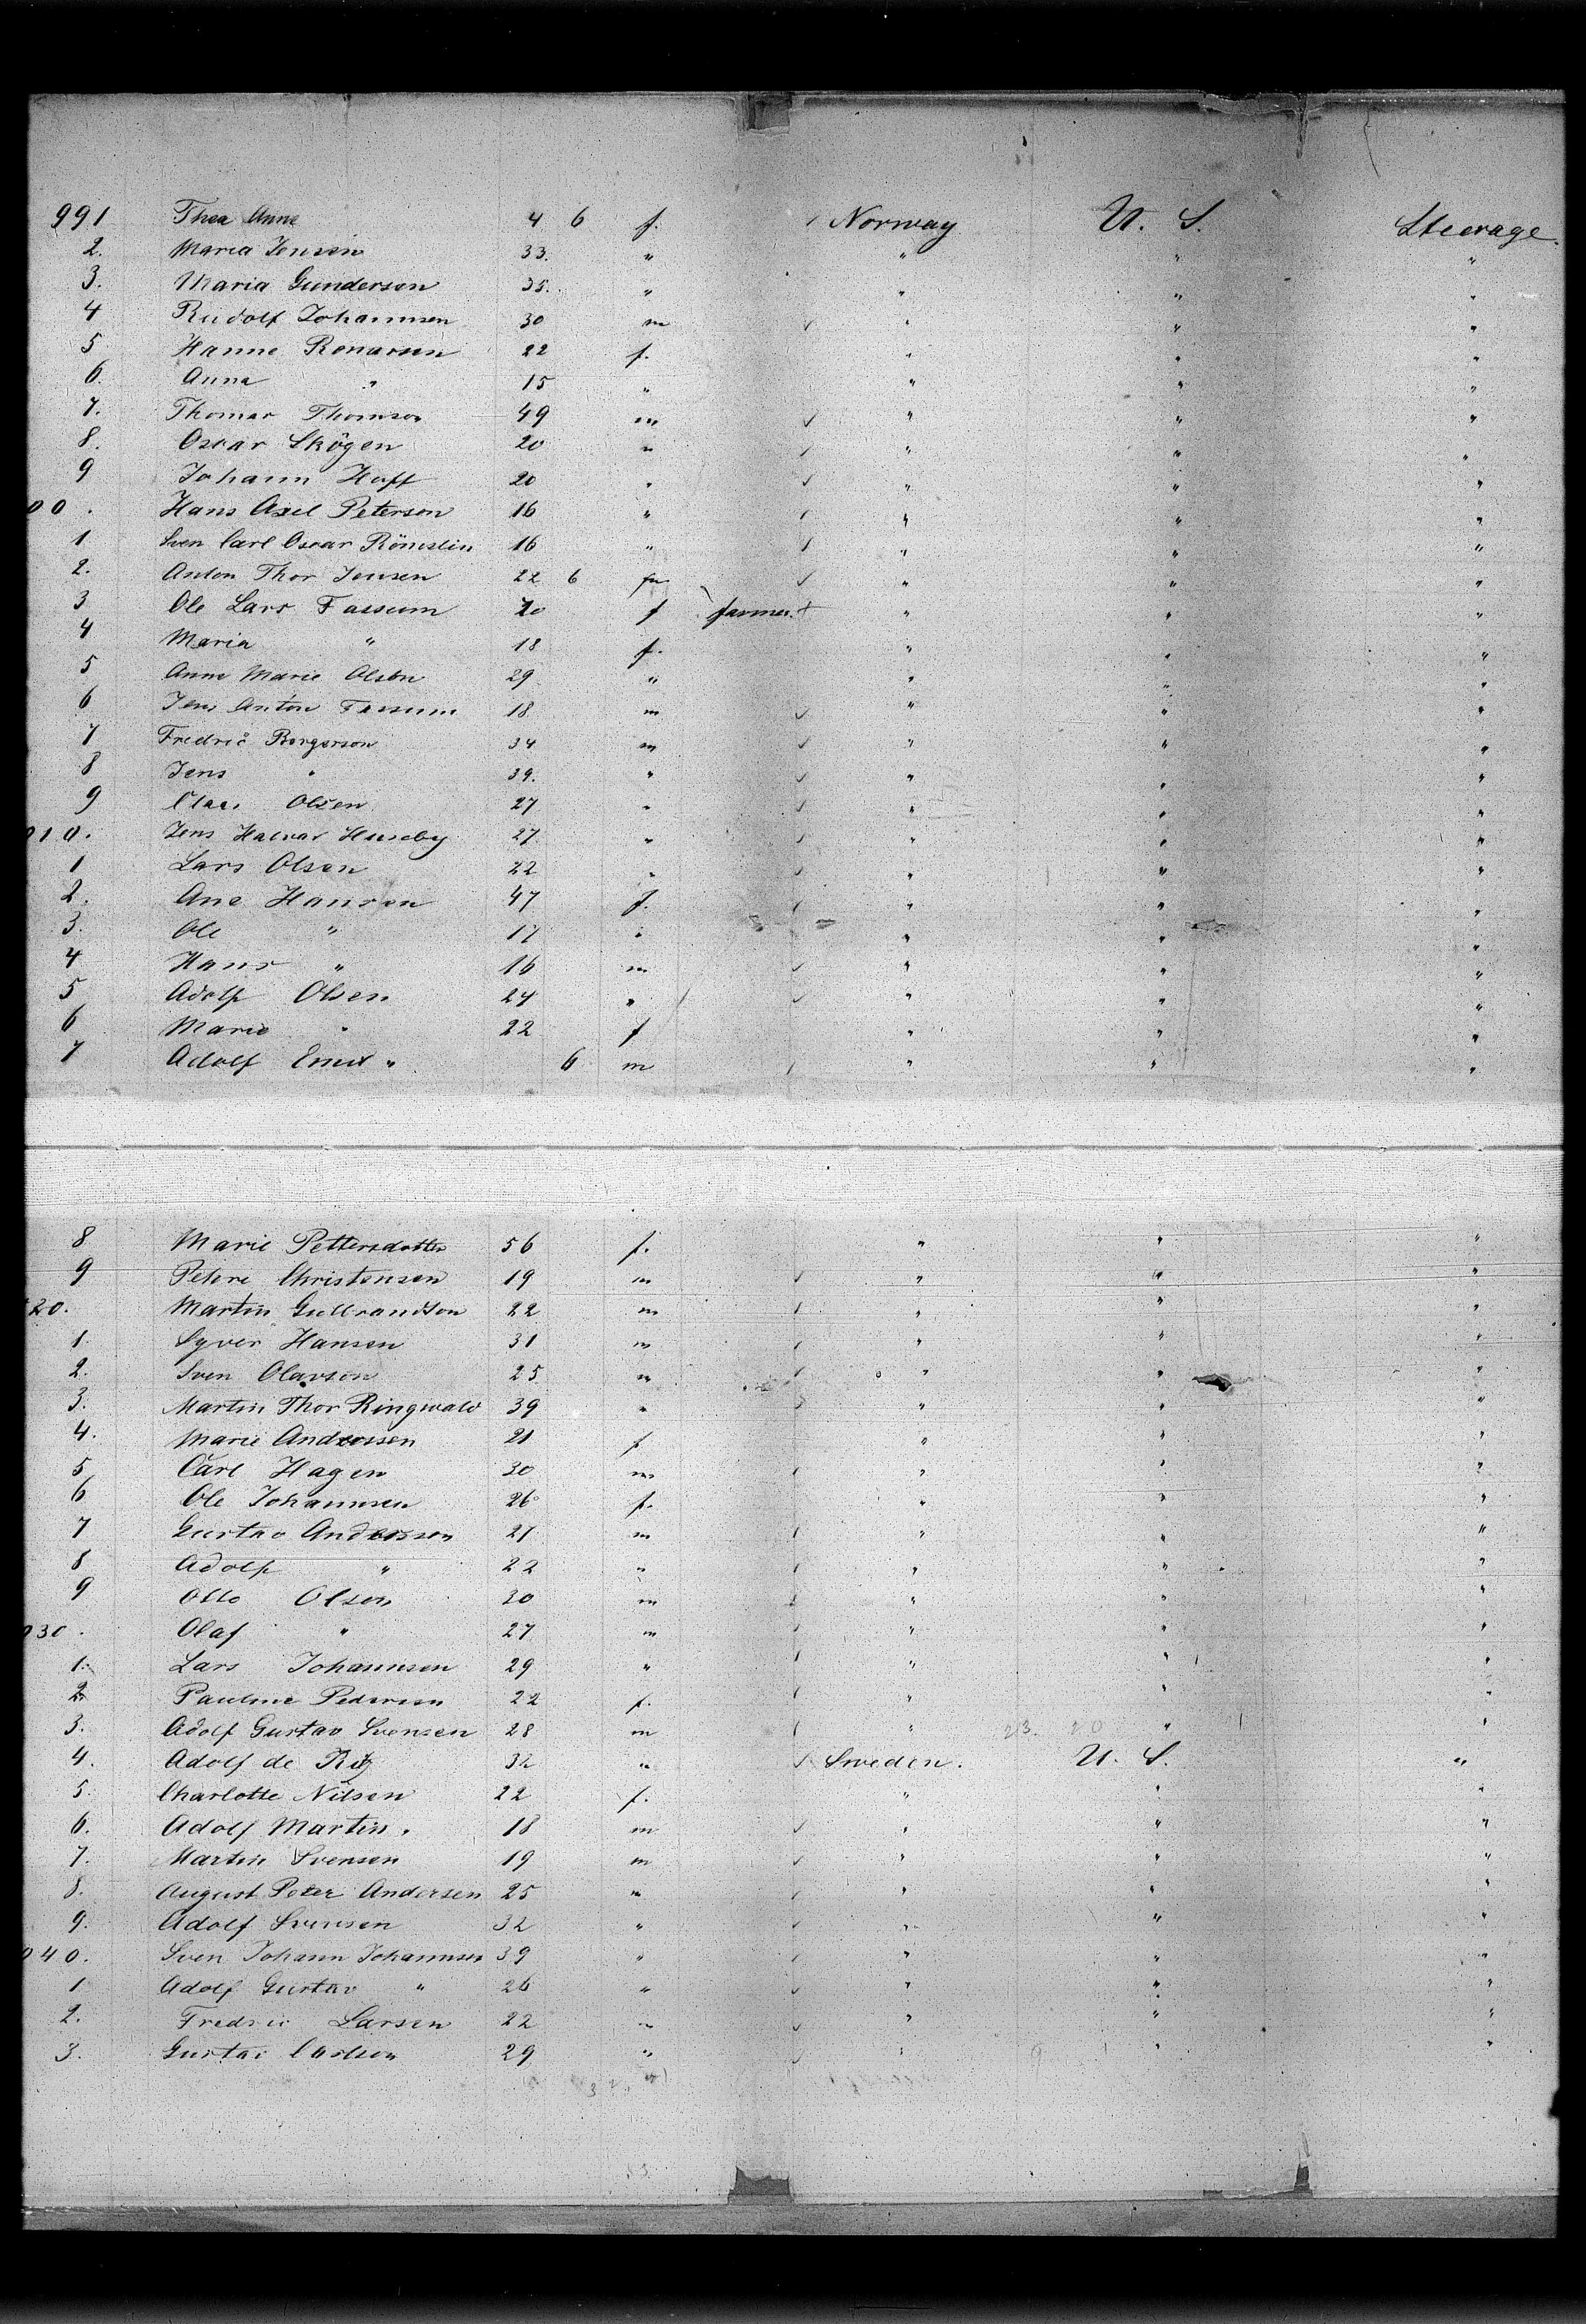 991 Thea Anne 4 6 f. Norway U. S. Steerage.
2. Maria Jensen 33. " " " "
3. Maria Gunderson 35. " " " "
4 Rudolf Johannsen 30 m " " "
5 Hanne Renarsen 22 f. " " "
6. Anna " 15 " " " "
7. Thomas Thomson 49 m " " "
8. Oscar Skögen 20 " " " "
9 Johann Hoff 20 " " " "
00. Hans Axel Peterson 16 " " " "
1 Sven Carl Oscar 16 " " " "
2. Anton Thor Jensen 22 6 m " " "
3 Ole Lars Fassum 20 f farmer. " " "
4 Maria " 18 f. " " "
5 Anne Marie Olsen 29 " " " "
6 Jens Anton Fassum 18 m " " "
7 Fredric Borgerson 34 m " " "
8 Jens " 39. " " " "
9 Olsen 27 " " " "
010. Jens Halvar Huseby 27 " " " "
1 Lars Olsen 22 " " " "
2. Ane Hansen 47 f. " " "
3. Ole " 17 " " " "
4 Hans " 16 m " " "
5 Adolf Olsen 24 " " " "
6 Marie " 22 f " " "
7 Adolf Emil " 6 m " " "
8 Marie Pettersdotter 56 f. " " "
9 Pehre Christensen 19 m " " "
20. Martin Gulbrandson 22 m " " "
1. Syver Hansen 31 m " " "
2. Sven Olavson 25 m " " "
3. Martin Thor Ringwald 39 " " " "
4. Marie Anderssen 21 f " " "
5 Carl Hagen 30 m " " "
6 Ole Johannsen 26 f. " " "
7 Gustav Anderssen 21 m " " "
8 Adolf " 22 " " " "
9 Otto Olsen 30 m " " "
030. Olaf " 27 m " " "
1. Lars Johannsen 29 " " " "
2. Pauline Pedersen 22 f. " " "
3. Adolf Gustav Svensen 28 m " " "
4. Adolf de 32 " Sweden. U. S. "
5. Charlotte Nilsen 22 f. " " "
6. Adolf Martin. 18 m " " "
7. Martin Svensen 19 m " " "
8. August Peter Andersen 25 " " " "
9. Adolf Svensen 32 " " " "
040. Sven Johann Johannsen 39 " " " "
1 Adolf Gustav " 26 " " " "
2. Fredric Larsen 22 " " " "
3. Gustav Carlson 29 " " " "